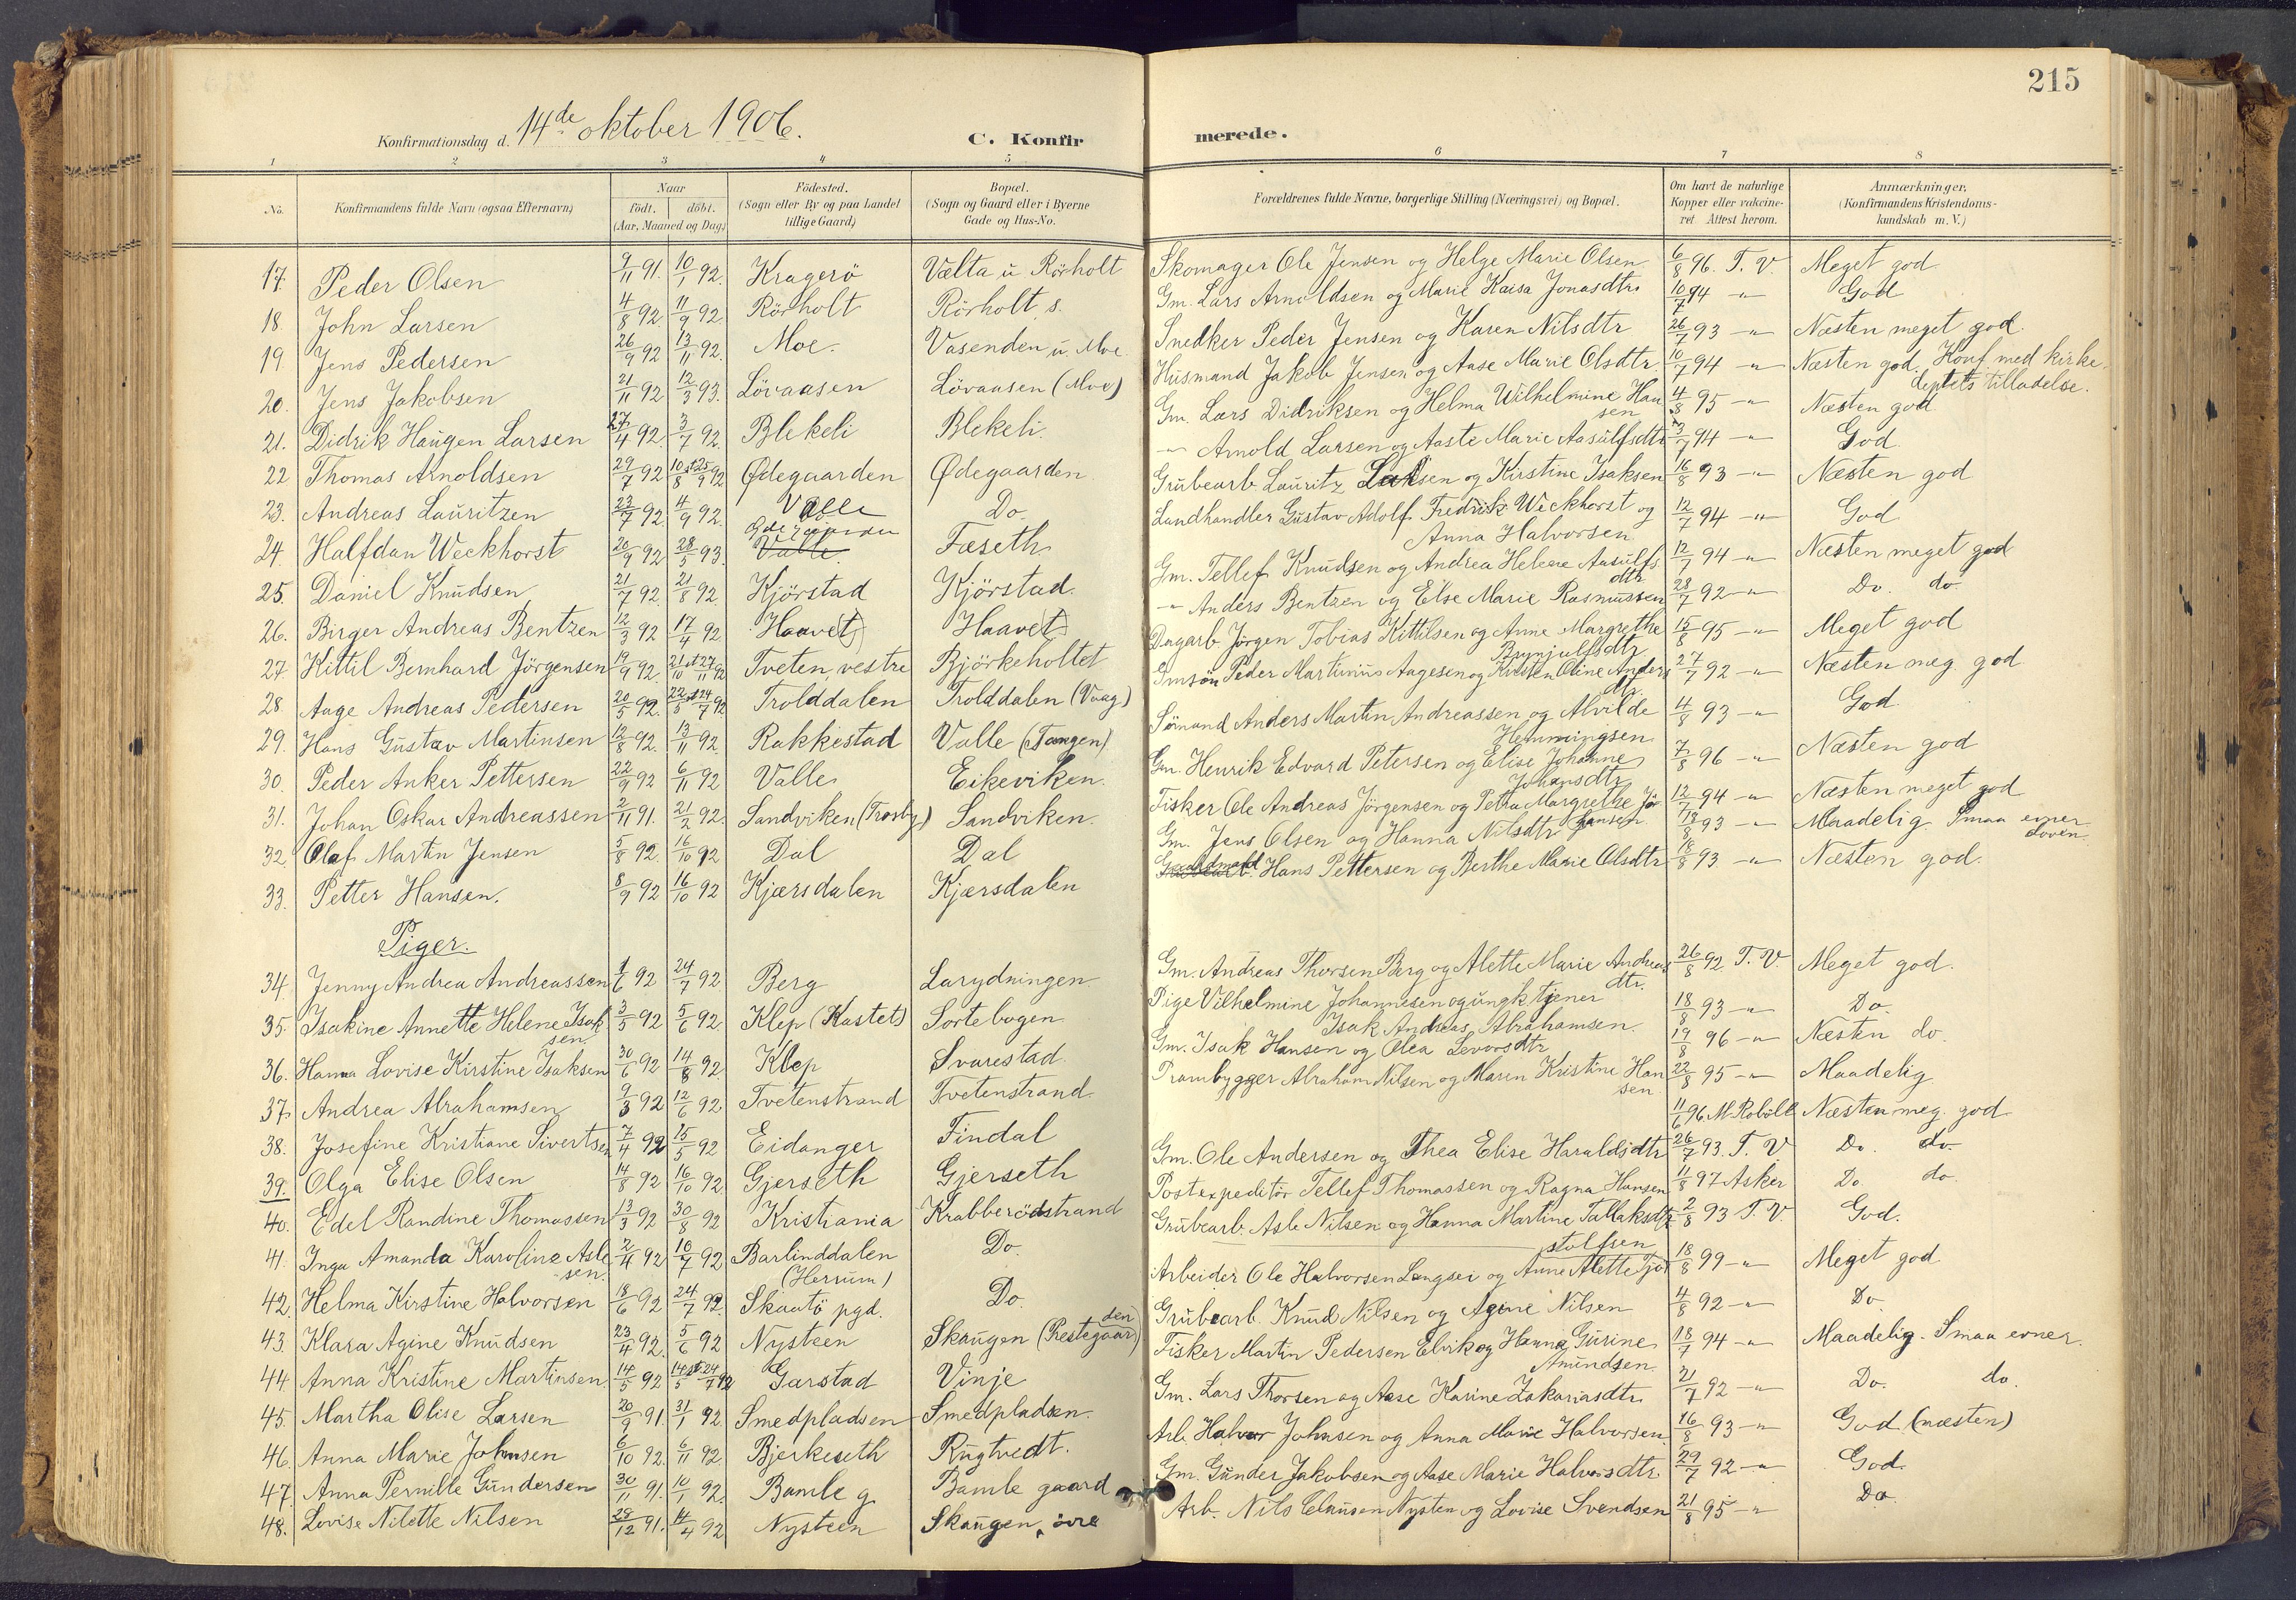 215
Konfirmationsdag d. 14de oktober 1906.
C. Konfirmerede.
1 2 3 4 5 6 7 8
No.
Konfirmandens fulde Navn (ogsaa Efternavn)
Naar
födt. döbt.
(Aar, Maaned og Dag.)
Födested.
(Sogn eller By og paa Landet
tillige Gaard)
Bopæl.
(Sogn og Gaard eller i Byerne
Gade og Hus-No.
Forældrenes fulde Navne, borgerlige Stilling (Næringsvei) og Bopæl.
Om havt de naturlige
Kopper eller vakcine-
ret Attest herom.
Anmærkninger.
(Konfirmandens Kristendoms-
kundskab m. V.)
17. Peder Olsen 9/11 91. 10/1 92. Kragerö Vælta u Rörholt Skomager Ole Jensen og Helge Marie Olsen 6/8 96. T. V. Meget god
18. John Larsen 4/8 92 11/9 92 Rörholt Rörholt, s. Gm. Lars Arnoldsen og Marie Kaisa Jonasdtr. 10/7 94 -"- God
19. Jens Pedersen 26/9 92 13/11 92. Moe. Vasenden u Moe Snedker Peder Jensen og Karen Nilsdtr 26/7 93 -"- Næsten meget god.
20. Jens Jakobsen 21/11 92 12/3 93. Lövaasen Lövaasen (Moe) Husmand Jakob Jensen og Aase Marie Olsdtr. 10/7 94 -"- Næsten god. Konf med kirke-
deptets tilladelse.
21. Didrik Haugen Larsen 27/4 92. 3/7 92. Blekeli Blekeli. Gm. Lars Didriksen og Helma Wilhelmine Han
sen 4/8 95 -"- Næsten god
22 Thomas Arnoldsen 29/7 92 10/8 st 25/9 92 Ødegaarden Ødegaarden -"- Arnold Larsen og Aaste Marie Aasulfsdtr 3/7 94 -"- God
23. Andreas Lauritzen 23/7 92 4/9 92. Valle Do. Grubearb. Lauritz Laksen og Kirstine Isaksen 16/8 93 -"- Næsten god
24. Halfdan Weckhorst 20/9 92 28/5 93. Ødegaarden Valle. Fæseth Landhandler Gustav Adolf Fredrik Weckhorst og
Anna Halvorsen 12/7 94 -"- God
25. Daniel Knudsen 21/7 92 21/8 92 Kjörstad Kjörstad. Gm. Tellef Knudsen og Andrea Helene Aasulfs
dtr 12/7 94 -"- Næsten meget god
26. Birger Andreas Bentzen 12/3 92 17/4 92 Haavet Haavet -"- Anders Bentzen og Else Marie Rasmussen 28/7 92 -"- Do. do.
27. Kittil Bernhard Jörgensen 19/9 92. 21/10 st 27/11 92 Tveten, vestre Björkeholtet Dagarb Jörgen Tobias Kittilsen og Anne Margrethe
Brynjulfsdtr 15/8 95 -"- Meget god
28. Aage Andreas Pedersen 20/5 92. 22/5 st 24/7 92 Trolddalen Trolddalen (Vaag) Gmsön Peder Martinius Aagesen og Kirsten Oline Anders
dtr. 27/7 92 -"- Næsten meg. god
29. Hans Gustav Martinsen 12/8 92. 13/11 92. Rakkestad Valle (Tangen) Sömand Anders Martin Andreassen og Alvilde
Hemmingsen 4/8 93 -"- God.
30. Peder Anker Pettersen 22/9 92 6/11 92 Valle Eikeviken. Gm. Henrik Edvard Petersen og Elise Johanne
Johansdtr 7/8 96 -"- Næsten god
31. Johan Oskar Andreassen 2/11 91. 21/2 92. Sandviken (Trosby) Sandviken. Fisker Ole Andreas Jörgensen og Petra Margrethe Jör
gensen 12/7 94 -"- Næsten meget god
32. Olaf Martin Jensen 5/8 92. 16/10 92 Dal Dal Gm. Jens Olsen og Hanna Nilsdtr 18/8 93 -"- Maadelig Smaa evner
doven.
33. Petter Hansen. 8/9 92 16/10 92 Kjærsdalen Kjærsdalen Hans Pettersen og Berthe Marie Olsdtr 18/8 93 -"- Næsten god.
Piger.
34. Jenny Andrea Andreassen 1/6 92 24/7 92. Berg Larydningen Gm. Andreas Thorsen Berg og Alette Marie Andreas
dtr. 26/8 92 T. V. Meget god.
35. Isakine Annette Helene Isak
sen 3/5 92 5/6 92 Klep (Kastet) Sortebogen Pige Vilhelmine Johannesen og ungk tjener
Isak Andreas Abrahamsen. 18/8 93 -"- Do.
36. Hanna Lovise Kirstine Isaksen 30/6 92 14/8 92. Klep Svarestad Gm. Isak Hansen og Olea Levorsdtr 19/8 96 -"- Næsten do.
37. Andrea Abrahamsen 9/3 92 12/6 92 Tvetenstrand Tvetenstrand Prambygger Abraham Nilsen og Maren Kristine Han
sen 22/8 95 -"- Maadelig
38. Josefine Kristiane Sivertsen 7/4 92 15/5 92 Eidanger Findal 11/6 96 M Robölle Næsten meg. god
39. Olga Elise Olsen 14/8 92 16/10 92 Gjerseth Gjerseth Gm. Ole Andersen og Thea Elise Haraldsdtr 26/7 93. T. V Do. do.
40. Edel Randine Thomassen 13/3 92 30/8 92 Kristiania Krabberödstrand Postexpeditör Tellef Thomassen og Ragna Hansen 11/8 97 Asker Do. do.
41. Inga Amanda Karoline Asle
sen. 2/4 92 16/7 92 Barlinddalen
(Herrum) Do. Grubearb. Asle Nilsen og Hanna Martine Tallaksdtr 2/8 93 T. V. God.
42. Helma Kirstine Halvorsen 18/6 92 24/7 92 Skaatö pgd. Do. Arbeider Ole Halvorsen Langsei og Anne Alette Tjos
stolfsen 18/8 99 -"- Meget god
43. Klara Agine Knudsen 23/4 92. 5/6 92 Nysteen Skaugen (Prestegaarden) Grubearb. Knud Nilsen og Agine Nilsen 4/8 92 -"- Do
44. Anna Kristine Martinsen 14/5 92 14/5 st 24/7 92 Garstad Vinje Fisker Martin Pedersen Elvik og Hanna Gurine
Amundsen 18/7 94 -"- Maadelig. Smaa evner.
45. Martha Olise Larsen 20/9 91. 31/1 92 Smedpladsen Smedpladsen. Gm. Lars Thorsen og Aase Karine Zakariasdtr 21/7 92 -"- Do. do.
46. Anna Marie Johnsen 6/10 92. 6/11 92 Bjerkeseth Rugtvedt. Arb. Halvor Johnsen og Anna Marie Halvorsen 16/8 93 -"- God (næsten)
47. Anna Pernille Gundersen 30/11 91. 10/1 92. Bamle g. Bamle gaard Gm. Gunder Jakobsen og Aase Marie Halvorsdtr. 29/7 92 -"- God
48. Lovise Nilette Nilsen 29/12 91. 14/4 92 Nysteen Skaugen, övre Arb. Nils Clausen Nysten og Lovise Svendsen 21/8 95 -"- Do.